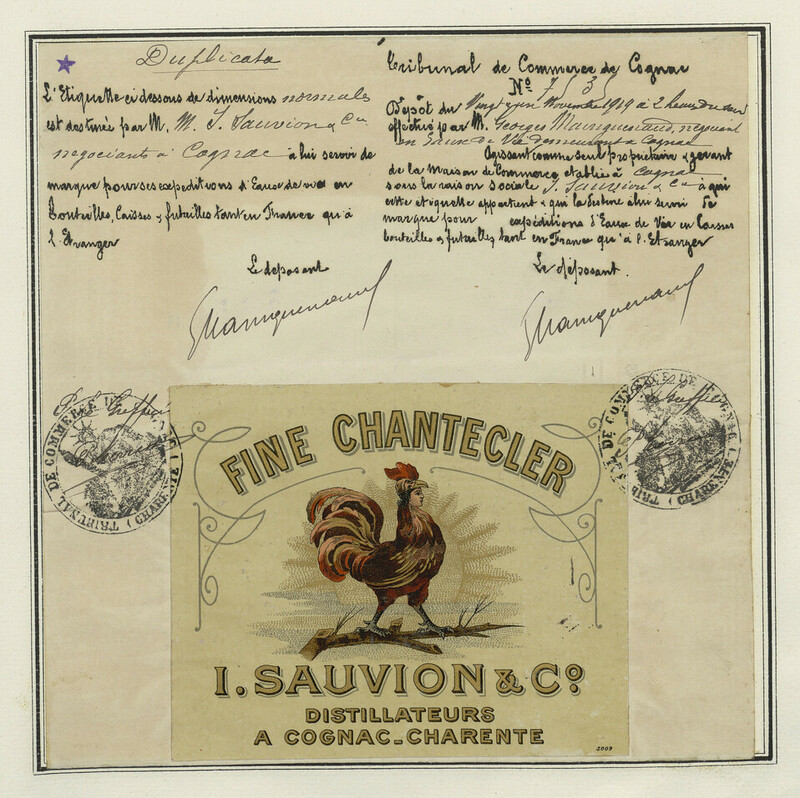 Duplicata
L'Etiquette ci dessous de dimensions normales
est destinée par M. M. I. Sauvion & Cie
négociants à Cognac à lui servir de
marque pour ses expéditions d'Eaux de vie en
bouteilles, Caisses & futailles tant en France qu'à
l'Etranger
Le déposant
Tribunal de Commerce de Cognac
No 735
Dépôt du Vingt juin Novembre 1919 à 2 heures du soir
effectué par M. Georges négociant
en Eaux de Vie demeurant à Cognac
Agissant comme seul propriétaire & gérant
de la Maison de Commerce établie à Cognac
sous la raison sociale I. Sauvion & Cie à qui
cette étiquette appartient & qui la destine à lui servir de
marque pour expéditions d'Eaux de Vie en Caisses
bouteilles & futailles tant en France qu'à l'Etranger
Le déposant.
TRIBUNAL DE COMMERCE DE (CHARENTE)
P. le Greffier
TRIBUNAL DE COMMERCE DE COGNAC (CHARENTE)
FINE CHANTECLER
I. SAUVION & Co
DISTILLATEURS
A COGNAC_CHARENTE
2009